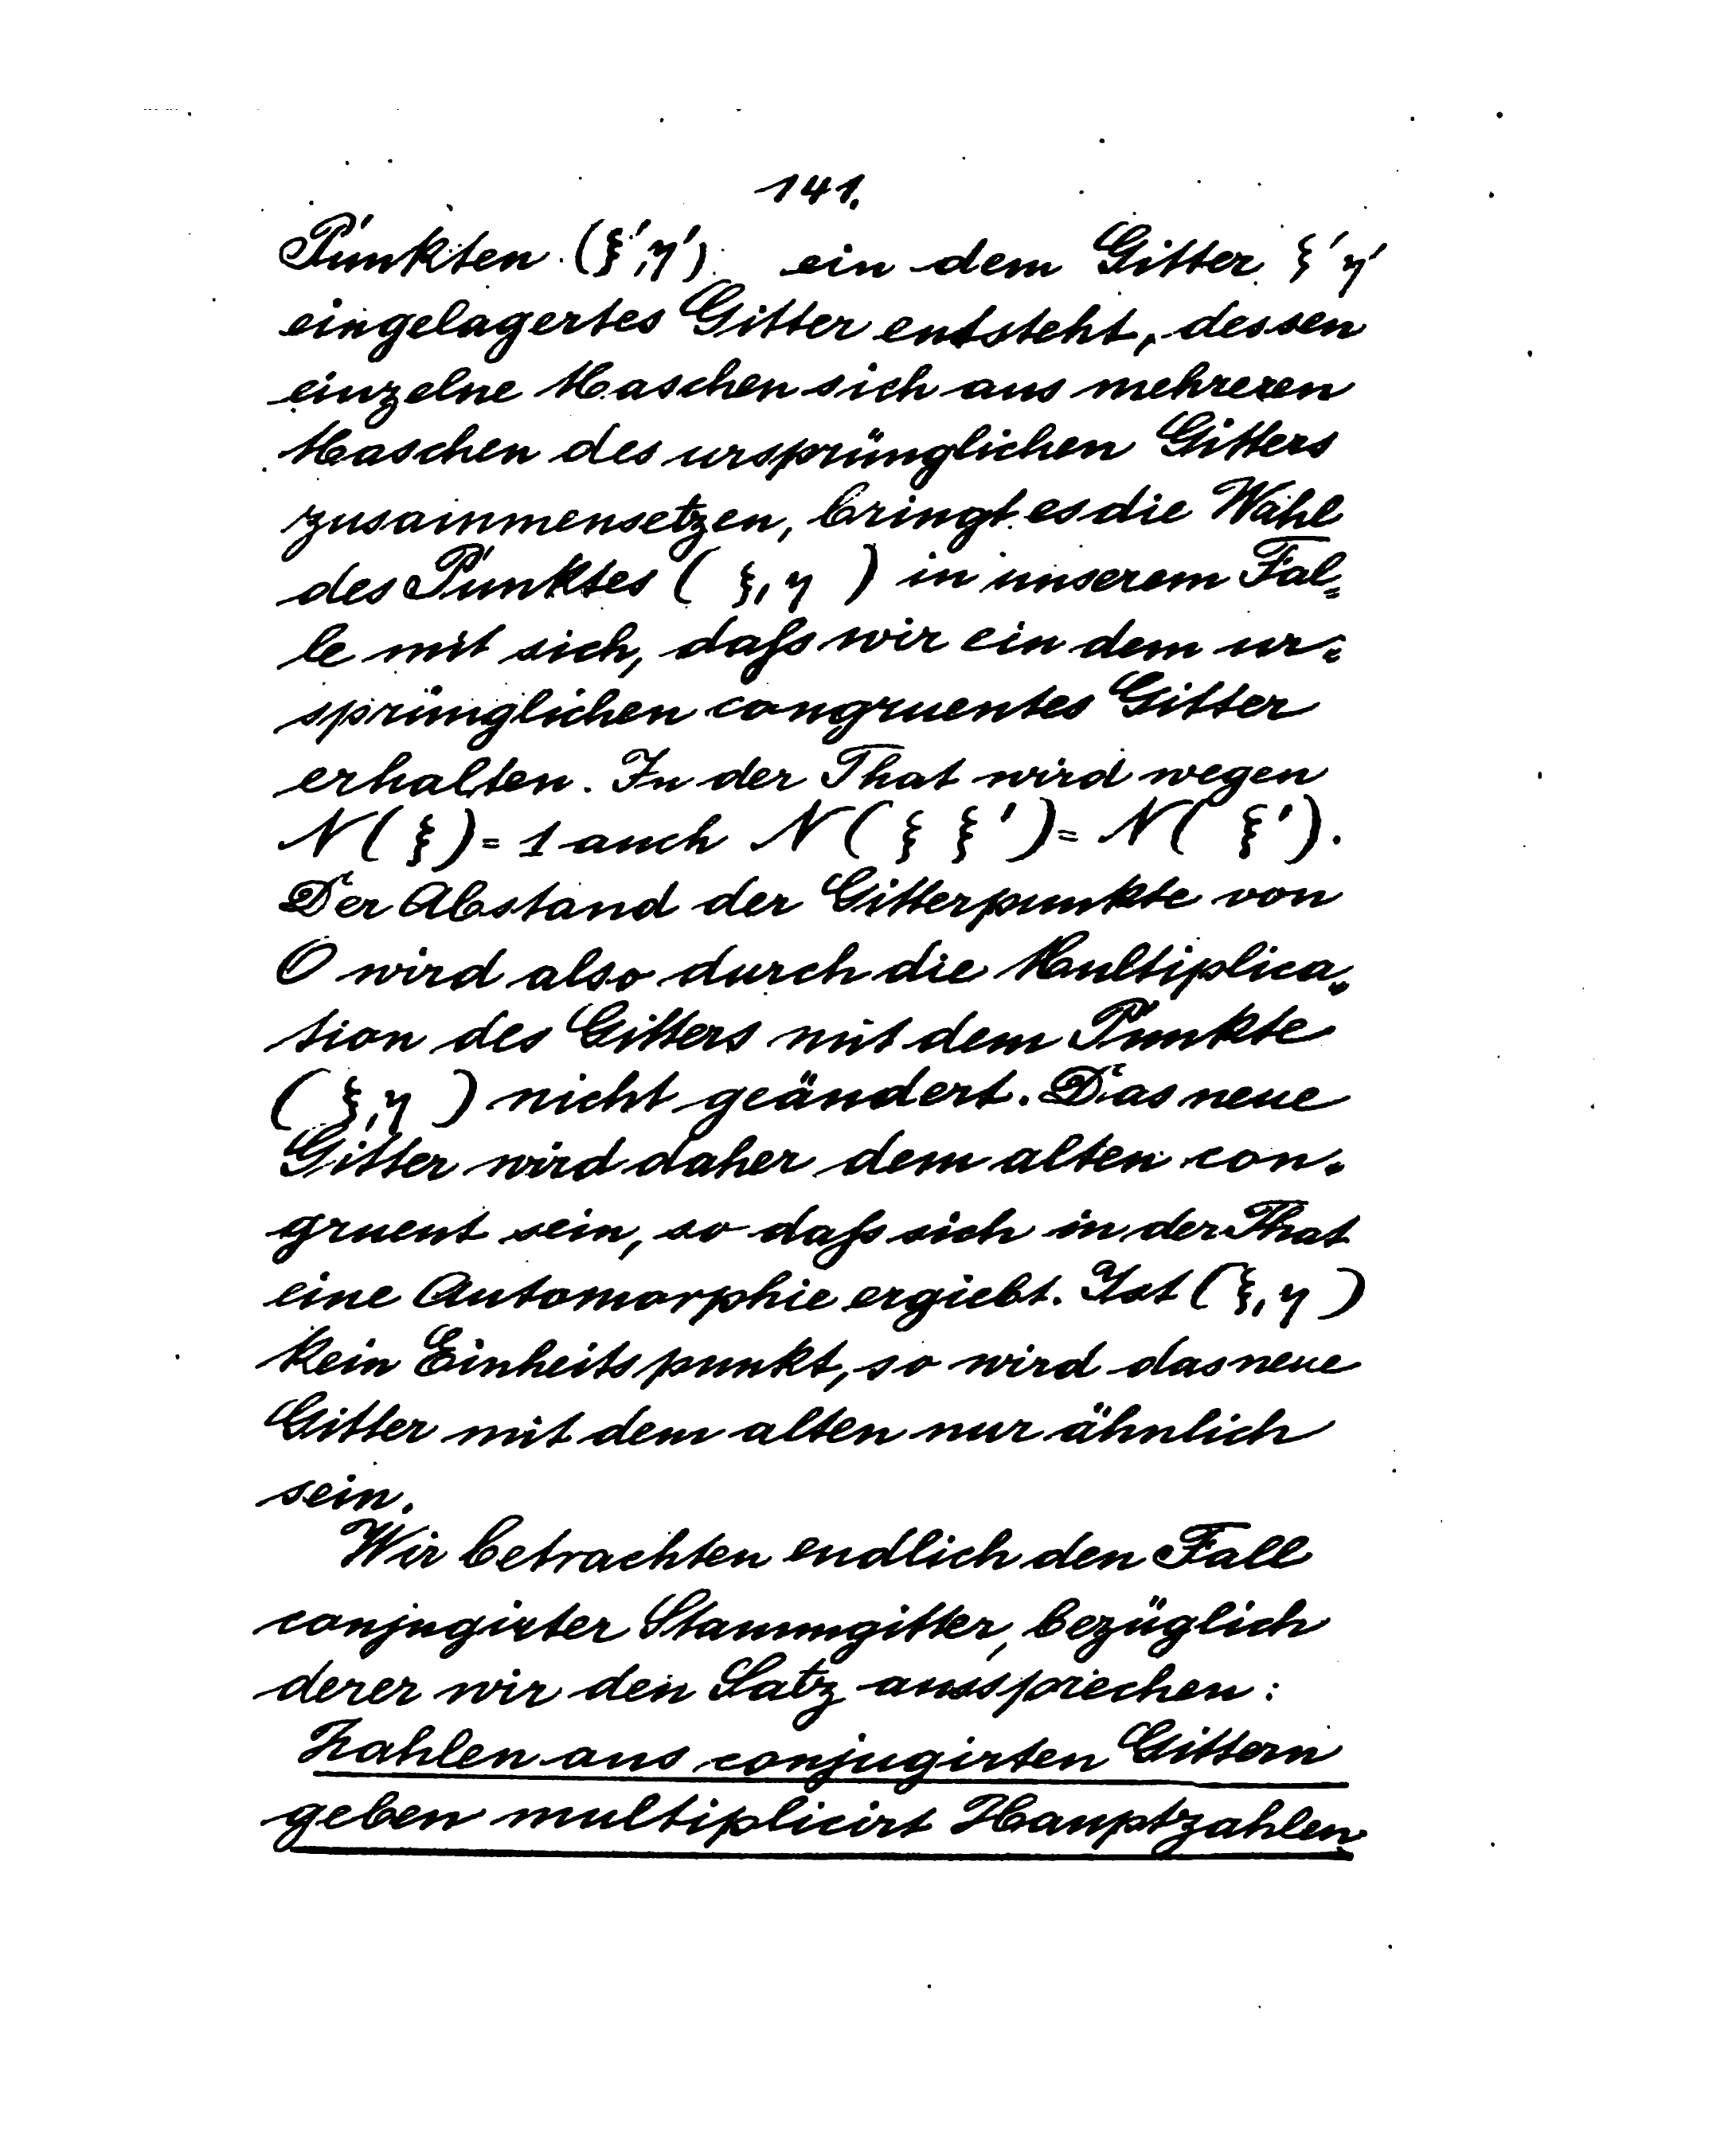 141.
Punkten (ξ′,η′) ein dem Gitter ξ′ η′
eingelagertes Gitter entsteht, dessen
einzelne Maschen sich aus mehreren
Maschen des ursprünglichen Gitters
zusammensetzen, bringt es die Wahl
des Punktes ( ξ, η ) in unserem Fal=
le mit sich, daſs wir ein dem ur=
sprünglichen congruentes Gitter
erhalten. In der That wird wegen
N(ξ) = 1 auch N( ξ ξ′ ) = N( ξ′ ).
Der Abstand der Gitterpunkte von
O wird also durch die Multiplica=
tion des Gitters mit dem Punkte
( ξ, η ) nicht geändert. Das neue
Gitter wird daher dem alten con=
gruent sein, so daſs sich in der That
eine Automorphie ergiebt. Ist ( ξ, η )
kein Einheitspunkt, so wird das neue
Gitter mit dem alten nur ähnlich
sein.
Wir betrachten endlich den Fall
conjugirter Stammgitter, bezüglich
derer wir den Satz aussprechen:
Zahlen aus conjugirten Gittern
geben multiplicirt Hauptzahlen